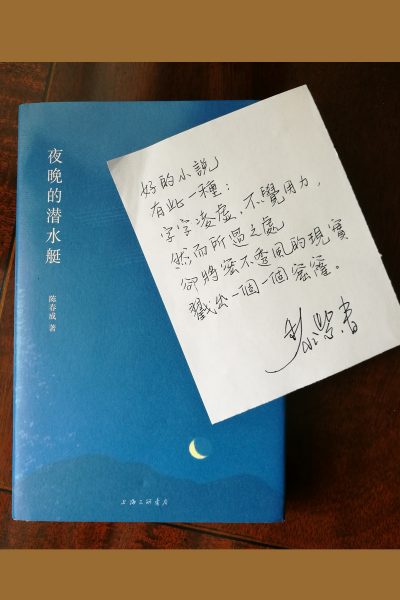 夜晚的潜水艇
陈春成 著
上海三联書店
好的小說
有此一種：
字字凌虛，不覺用力，
然而所過之處
卻將密不透風的現實
戳出一個一個窟窿。
黎紫書